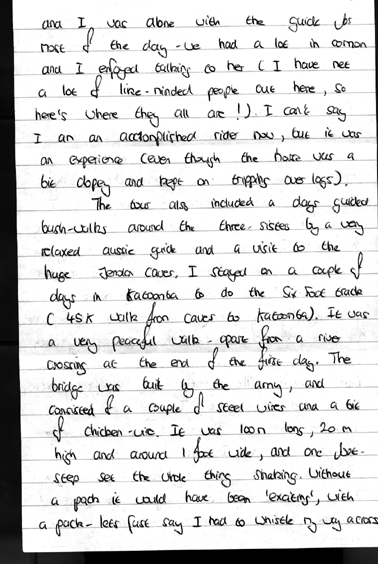 and I was alone with the guide for
most of the day - we had a lot in comon
and I enjoyed talking to her ( I have met
a lot of like-minded people out here, so
here's where they all are ! ). I can't say
I am an accomplished rider now, but it was
an experience (even though the horse was a
bit dopey and kept on tripping over logs).
The tour also included a days guided
bush-walks around the three-sisters by a very
relaxed aussie guide and a visit to the
huge Jenolan caves. I stayed on a couple of
days in Katoomba to do the Six Foot track
( 45K walk from caves to Katoomba). It was
a very peaceful walk - apart from a river
crossing at the end of the first day. The
bridge was built by the army, and
consisted of a couple of steel wires and a bit
of chicken-wire. It was 100m long, 20 m
high and around 1 foot wide, and one foot-
step set the whole thing shaking. Without
a pack it would have been 'exciting', with
a pack - lets just say I had to whistle my way across